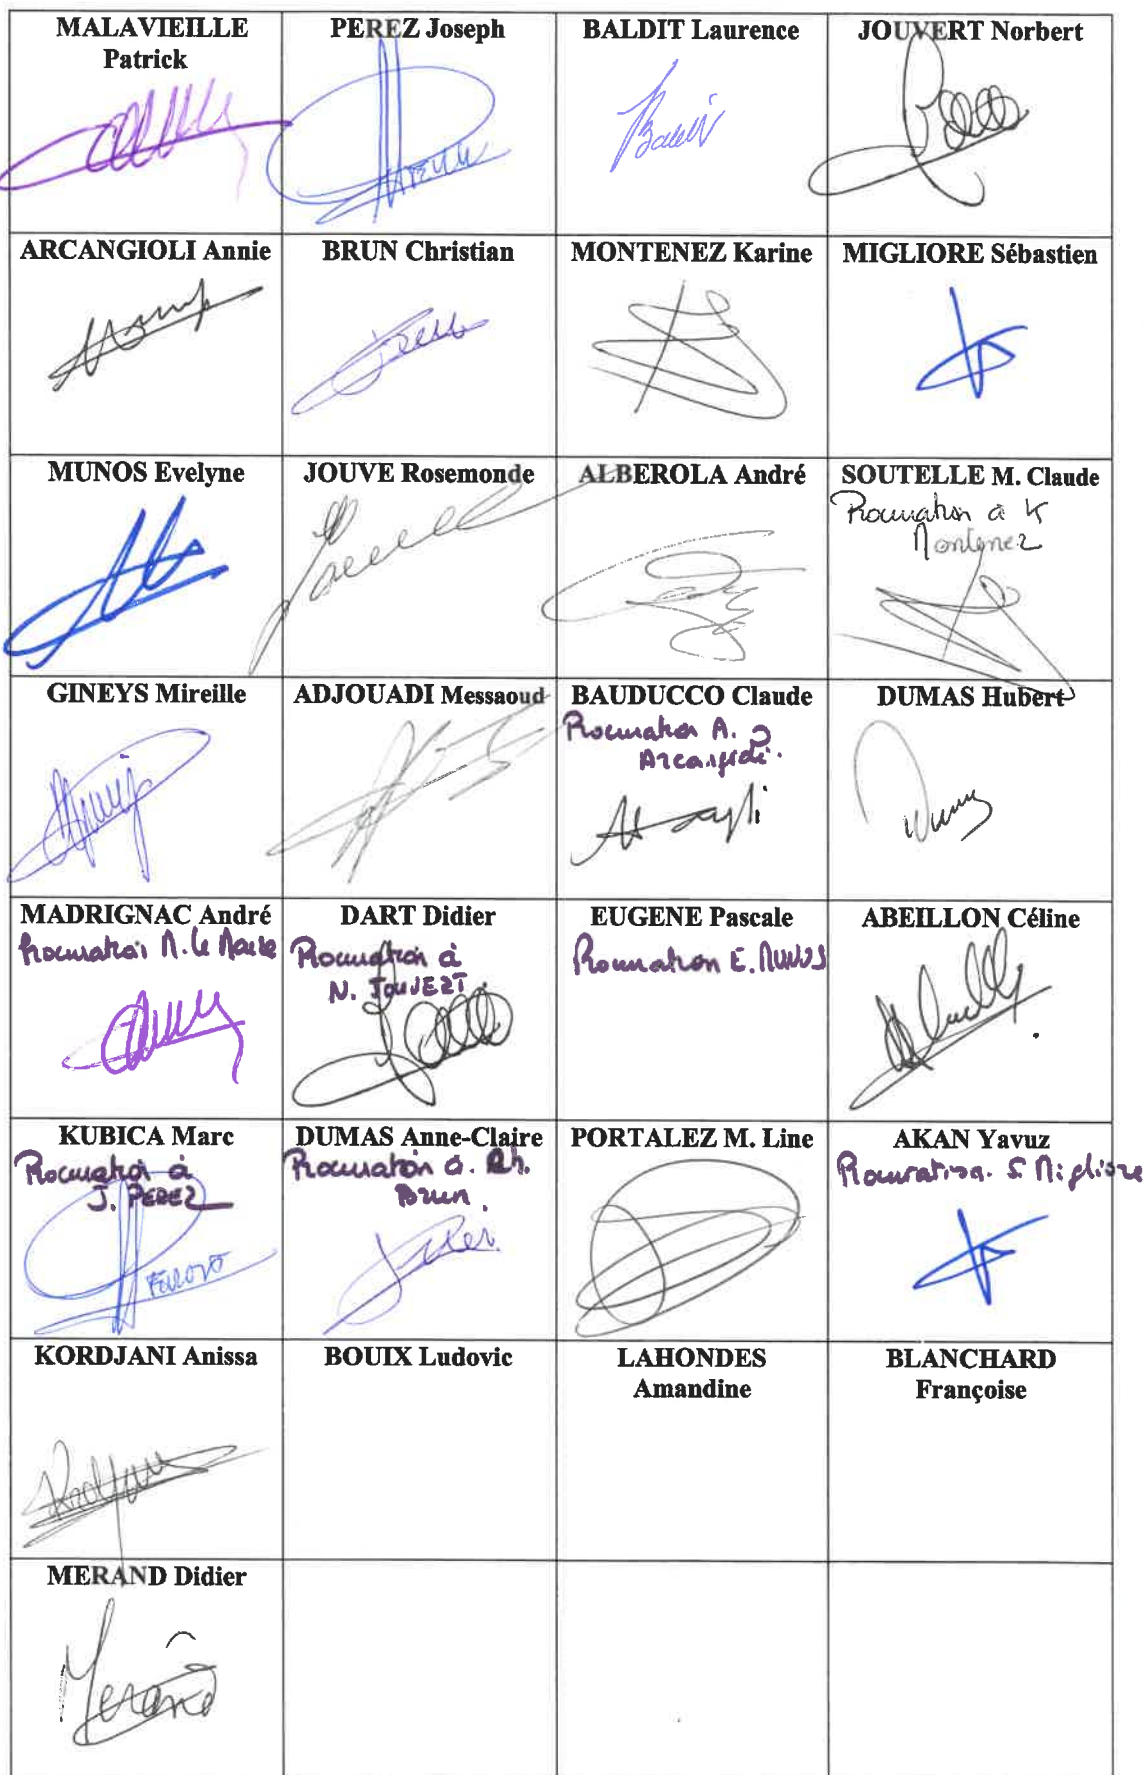 MALAVIEILLE
Patrick
PEREZ Joseph
BALDIT Laurence
JOUVERT Norbert
ARCANGIOLI Annie
BRUN Christian
MONTENEZ Karine
MIGLIORE Sébastien
MUNOS Evelyne
JOUVE Rosemonde
ALBEROLA André
SOUTELLE M. Claude
Procuration à K
Montenez
GINEYS Mireille
ADJOUADI Messaoud
BAUDUCCO Claude
Procuration A.
Arcangioli.
DUMAS Hubert
MADRIGNAC André
Procuration M. le Maire
DART Didier
Procuration à
N. JOUVERT
EUGENE Pascale
Procuration E. MUNOS
ABEILLON Céline
KUBICA Marc
Procuration à
J. PEREZ
DUMAS Anne-Claire
Procuration à. Ch.
Brun.
PORTALEZ M. Line
AKAN Yavuz
Procuration. S. Migliore
KORDJANI Anissa
BOUIX Ludovic
LAHONDES
Amandine
BLANCHARD
Françoise
MERAND Didier
Merand